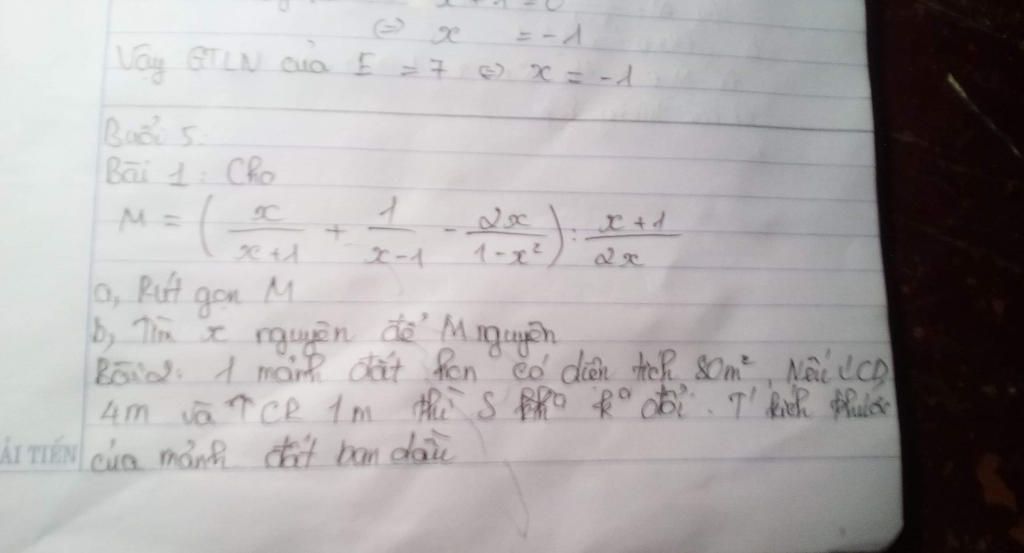 x + 1 = 0
⇔ x = -1
Vậy GTLN của E = 7 ⇔ x = -1
Buổi 5:
Bài 1: Cho
M = ( x/(x+1) + 1/(x-1) - 2x/(1-x²) ) : (x+1)/2x
a, Rút gọn M
b, Tìm x nguyên để M nguyên
Bài 2: 1 mảnh đất hcn có diện tích 80m². Nếu ↓CD
4m và ↑CR 1m thì S k° đổi. T' kích thước
ẢI TIẾN của mảnh đất ban đầu